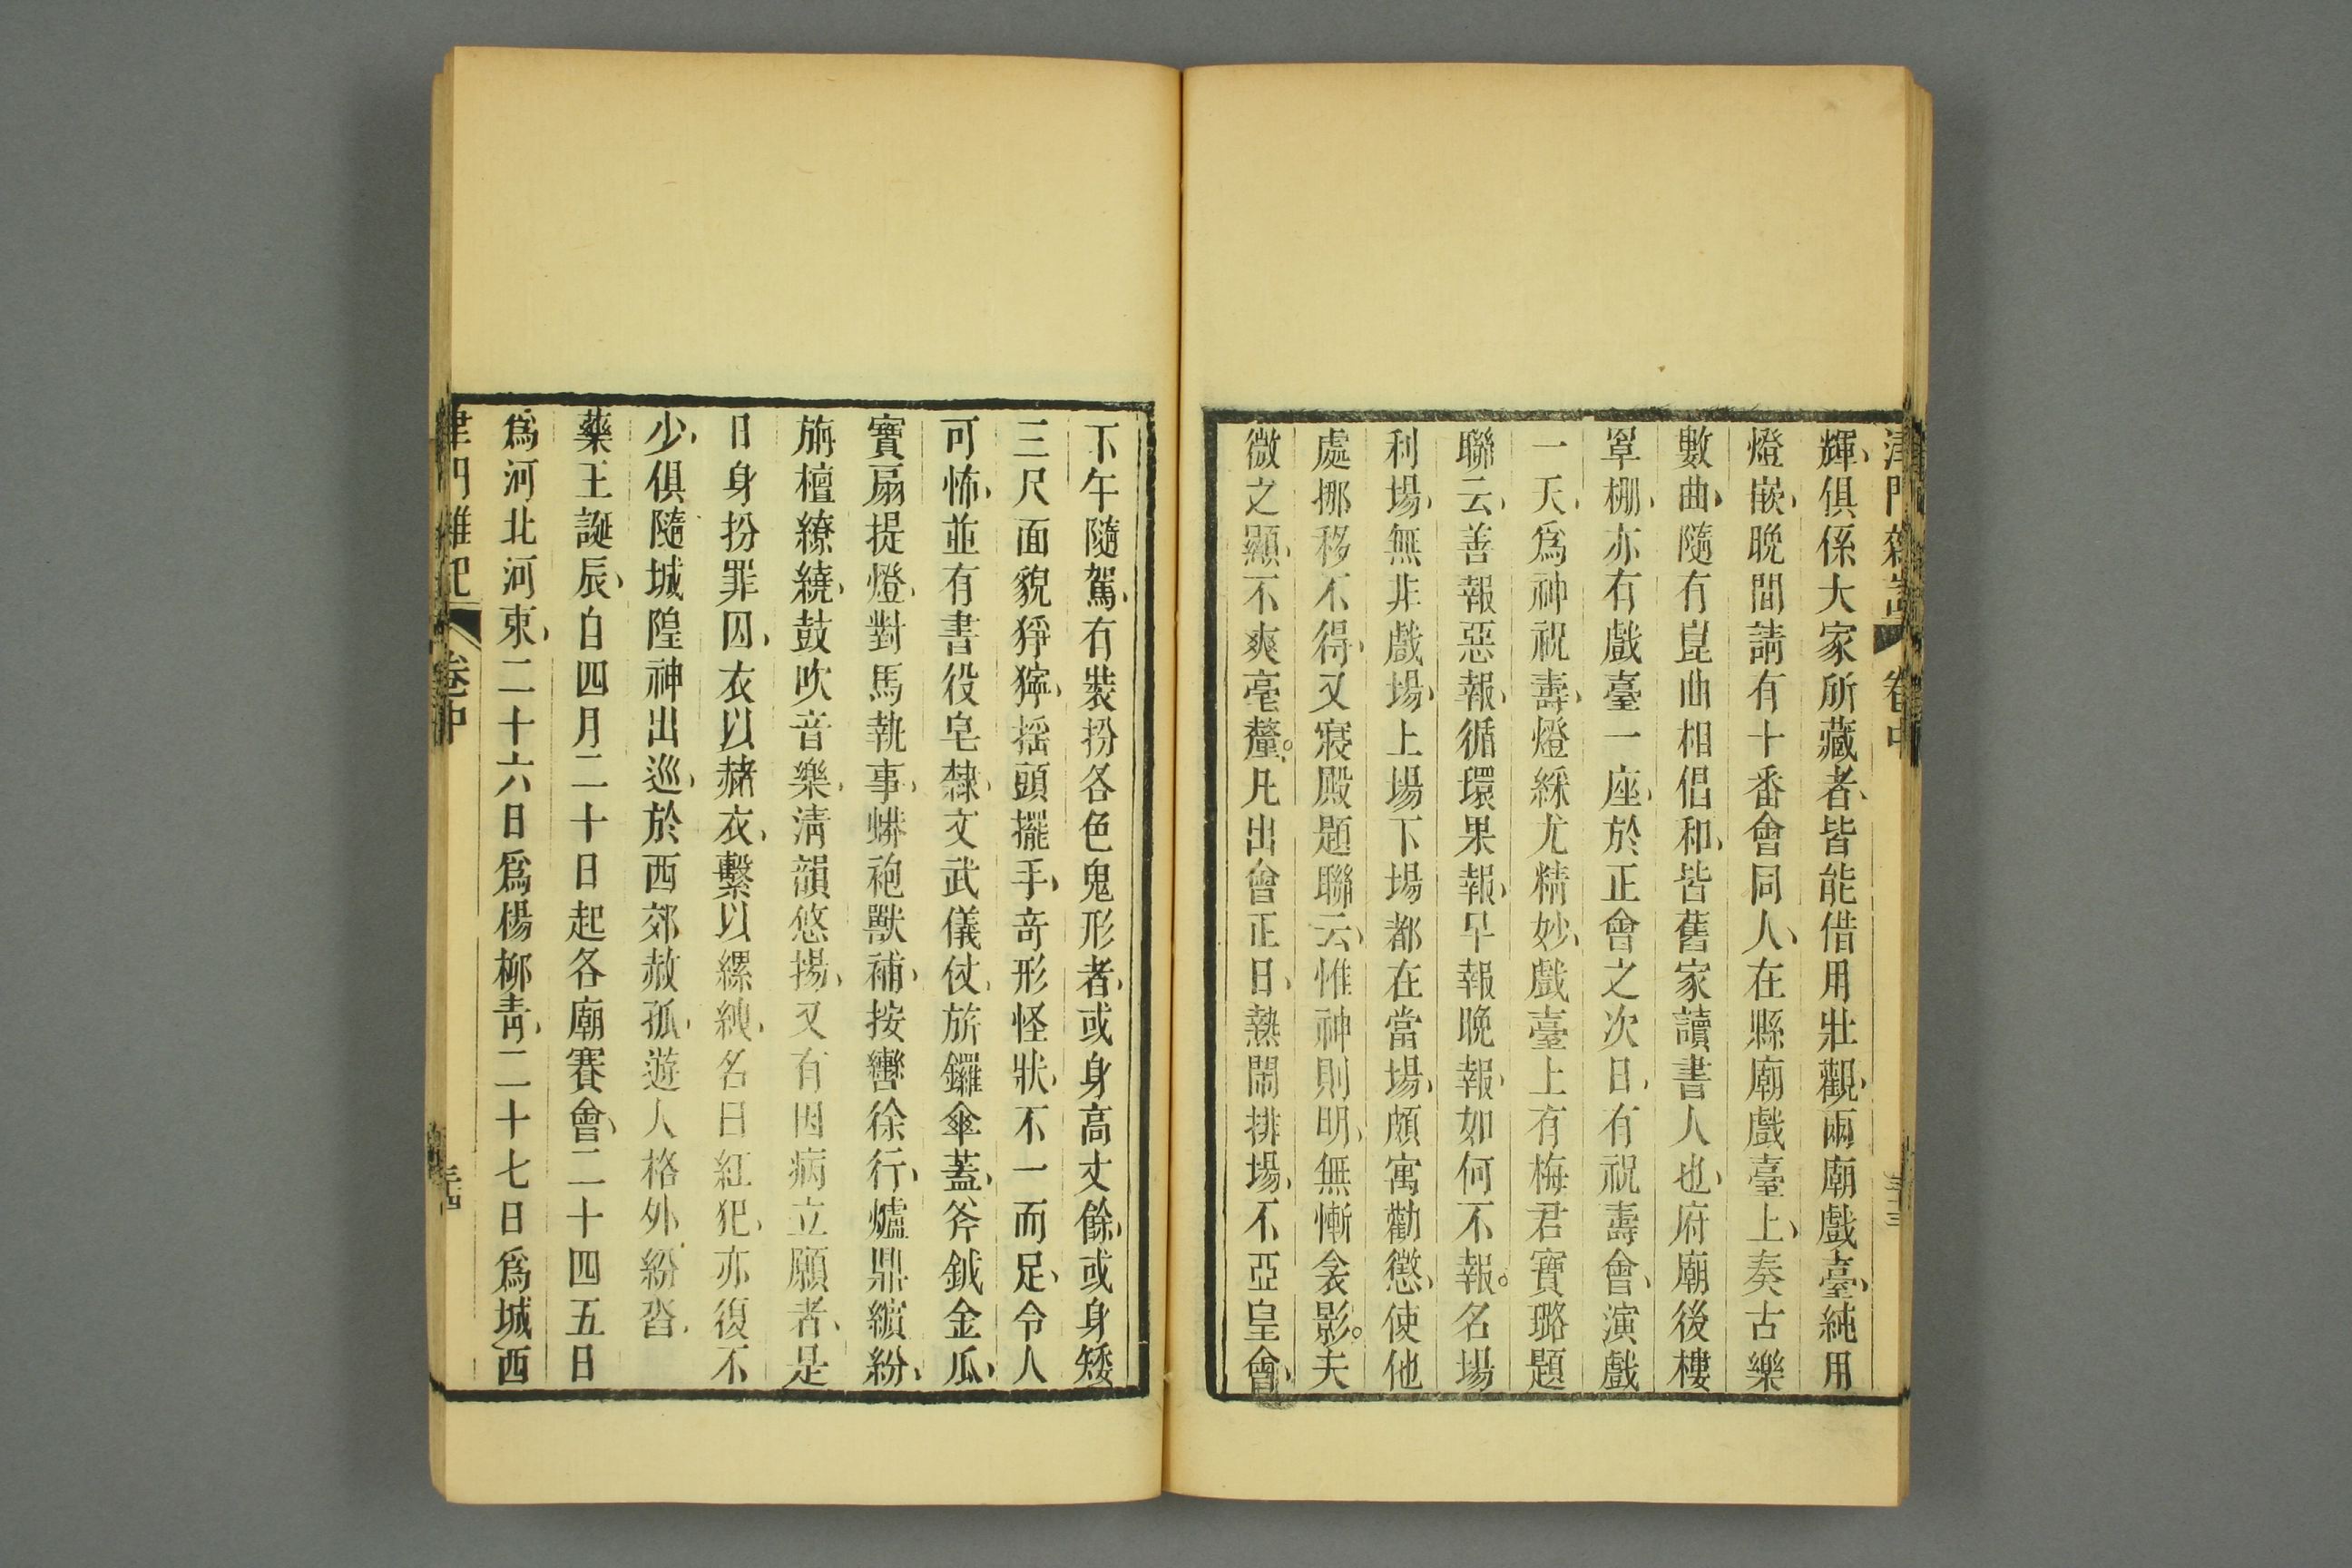 津門雜記 卷中 三十三
輝、俱係大家所藏者、皆能借用壯觀、兩廟戲臺、純用
燈嵌、晚間請有十番會同人、在縣廟戲臺上、奏古樂
數曲、隨有崑曲相倡和、皆舊家讀書人也、府廟後樓
罩棚、亦有戲臺一座、於正會之次日、有祝壽會、演戲
一天、爲神祝壽、燈綵尤精妙、戲臺上有梅君寶璐題
聯云、善報惡報、循環果報、早報晚報、如何不報。名場
利場、無非戲場、上場下場、都在當場、頗寓勸懲、使他
處挪移不得、又寢殿題聯云、惟神則明、無慚衾影。夫
微之顯、不爽毫釐。凡出會正日、熱鬧排場、不亞皇會、
下午隨駕、有裝扮各色鬼形者、或身高丈餘、或身矮
三尺、面貌猙獰、搖頭擺手、奇形怪狀、不一而足、令人
可怖、並有書役皂隸、文武儀仗、旂鑼傘蓋、斧鉞金瓜、
寶扇提燈、對馬執事、蟒袍獸補、按轡徐行、爐鼎繽紛、
旃檀繚繞、鼓吹音樂、淸韻悠揚、又有因病立願者、是
日身扮罪囚、衣以赭衣、繫以縲絏、名曰紅犯、亦復不
少、俱隨城隍神出巡、於西郊赦孤、遊人格外紛沓、
藥王誕辰、自四月二十日起各廟賽會、二十四五日
爲河北河東、二十六日爲楊柳靑、二十七日爲城西
津門雜記 卷中 三十四